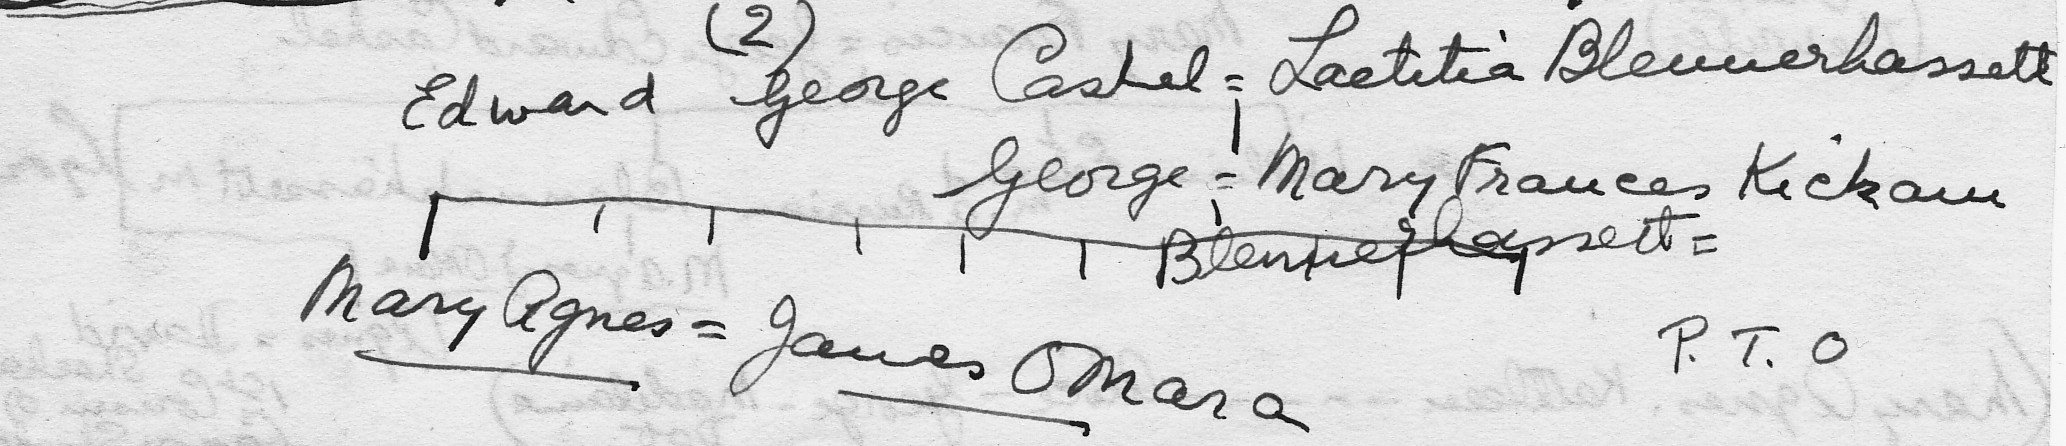 (2)
Edward George Cashel = Laetitia Blennerhassett
George = Mary Frances Kickam
Blennerhassett =
Mary Agnes = James OMara
P. T. O